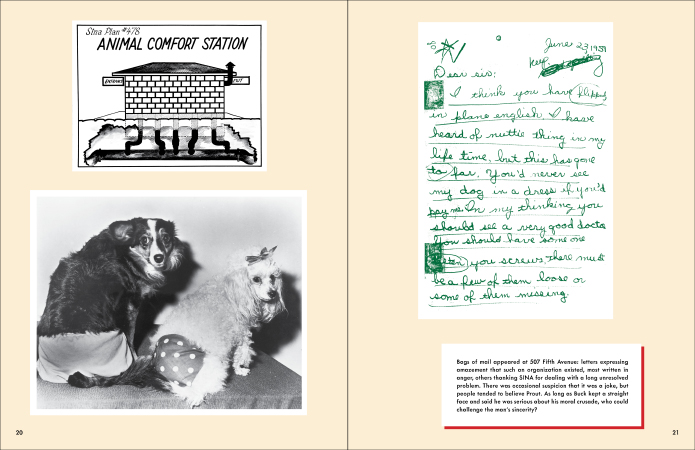 Sina Plan #478
ANIMAL COMFORT STATION
ENTRANCE
OUT
20
June 23, 1959
Dear sir:
I think you have flipped
in plane english. I have
heard of nuttie thing in my
life time, but this has gone
to far. You'd never see
my dog in a dress if you'd
pay me. In my thinking you
should see a very good docto
You should have some one
you screws there must
be a few of them loose or
some of them missing.
Bags of mail appeared at 507 Fifth Avenue: letters expressing
amazement that such an organization existed, most written in
anger, others thanking SINA for dealing with a long unresolved
problem. There was occasional suspicion that it was a joke, but
people tended to believe Prout. As long as Buck kept a straight
face and said he was serious about his moral crusade, who could
challenge the man's sincerity?
21